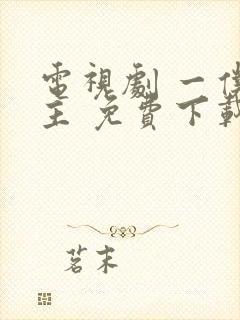 電視劇 一僕
主 免費下載
茗末